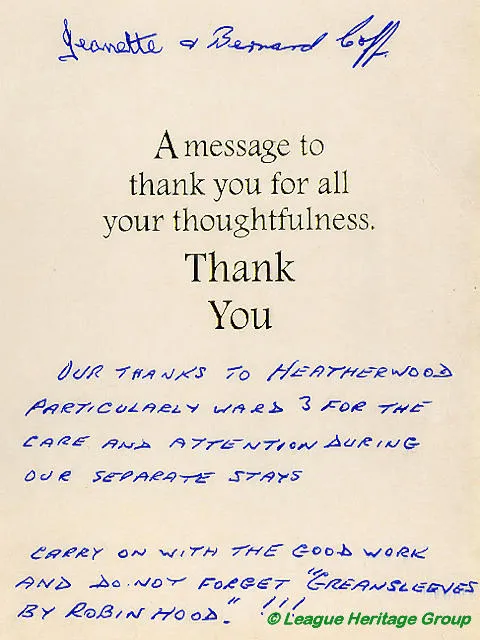 Jeanette & Bernard Goff.
A message to
thank you for all
your thoughtfulness.
Thank
You
OUR THANKS TO HEATHERWOOD
PARTICULARLY WARD 3 FOR THE
CARE AND ATTENTION DURING
OUR SEPARATE STAYS
CARRY ON WITH THE GOOD WORK
AND DO. NOT FORGET "GREANSLEEVES
BY ROBIN HOOD." !!!
© League Heritage Group